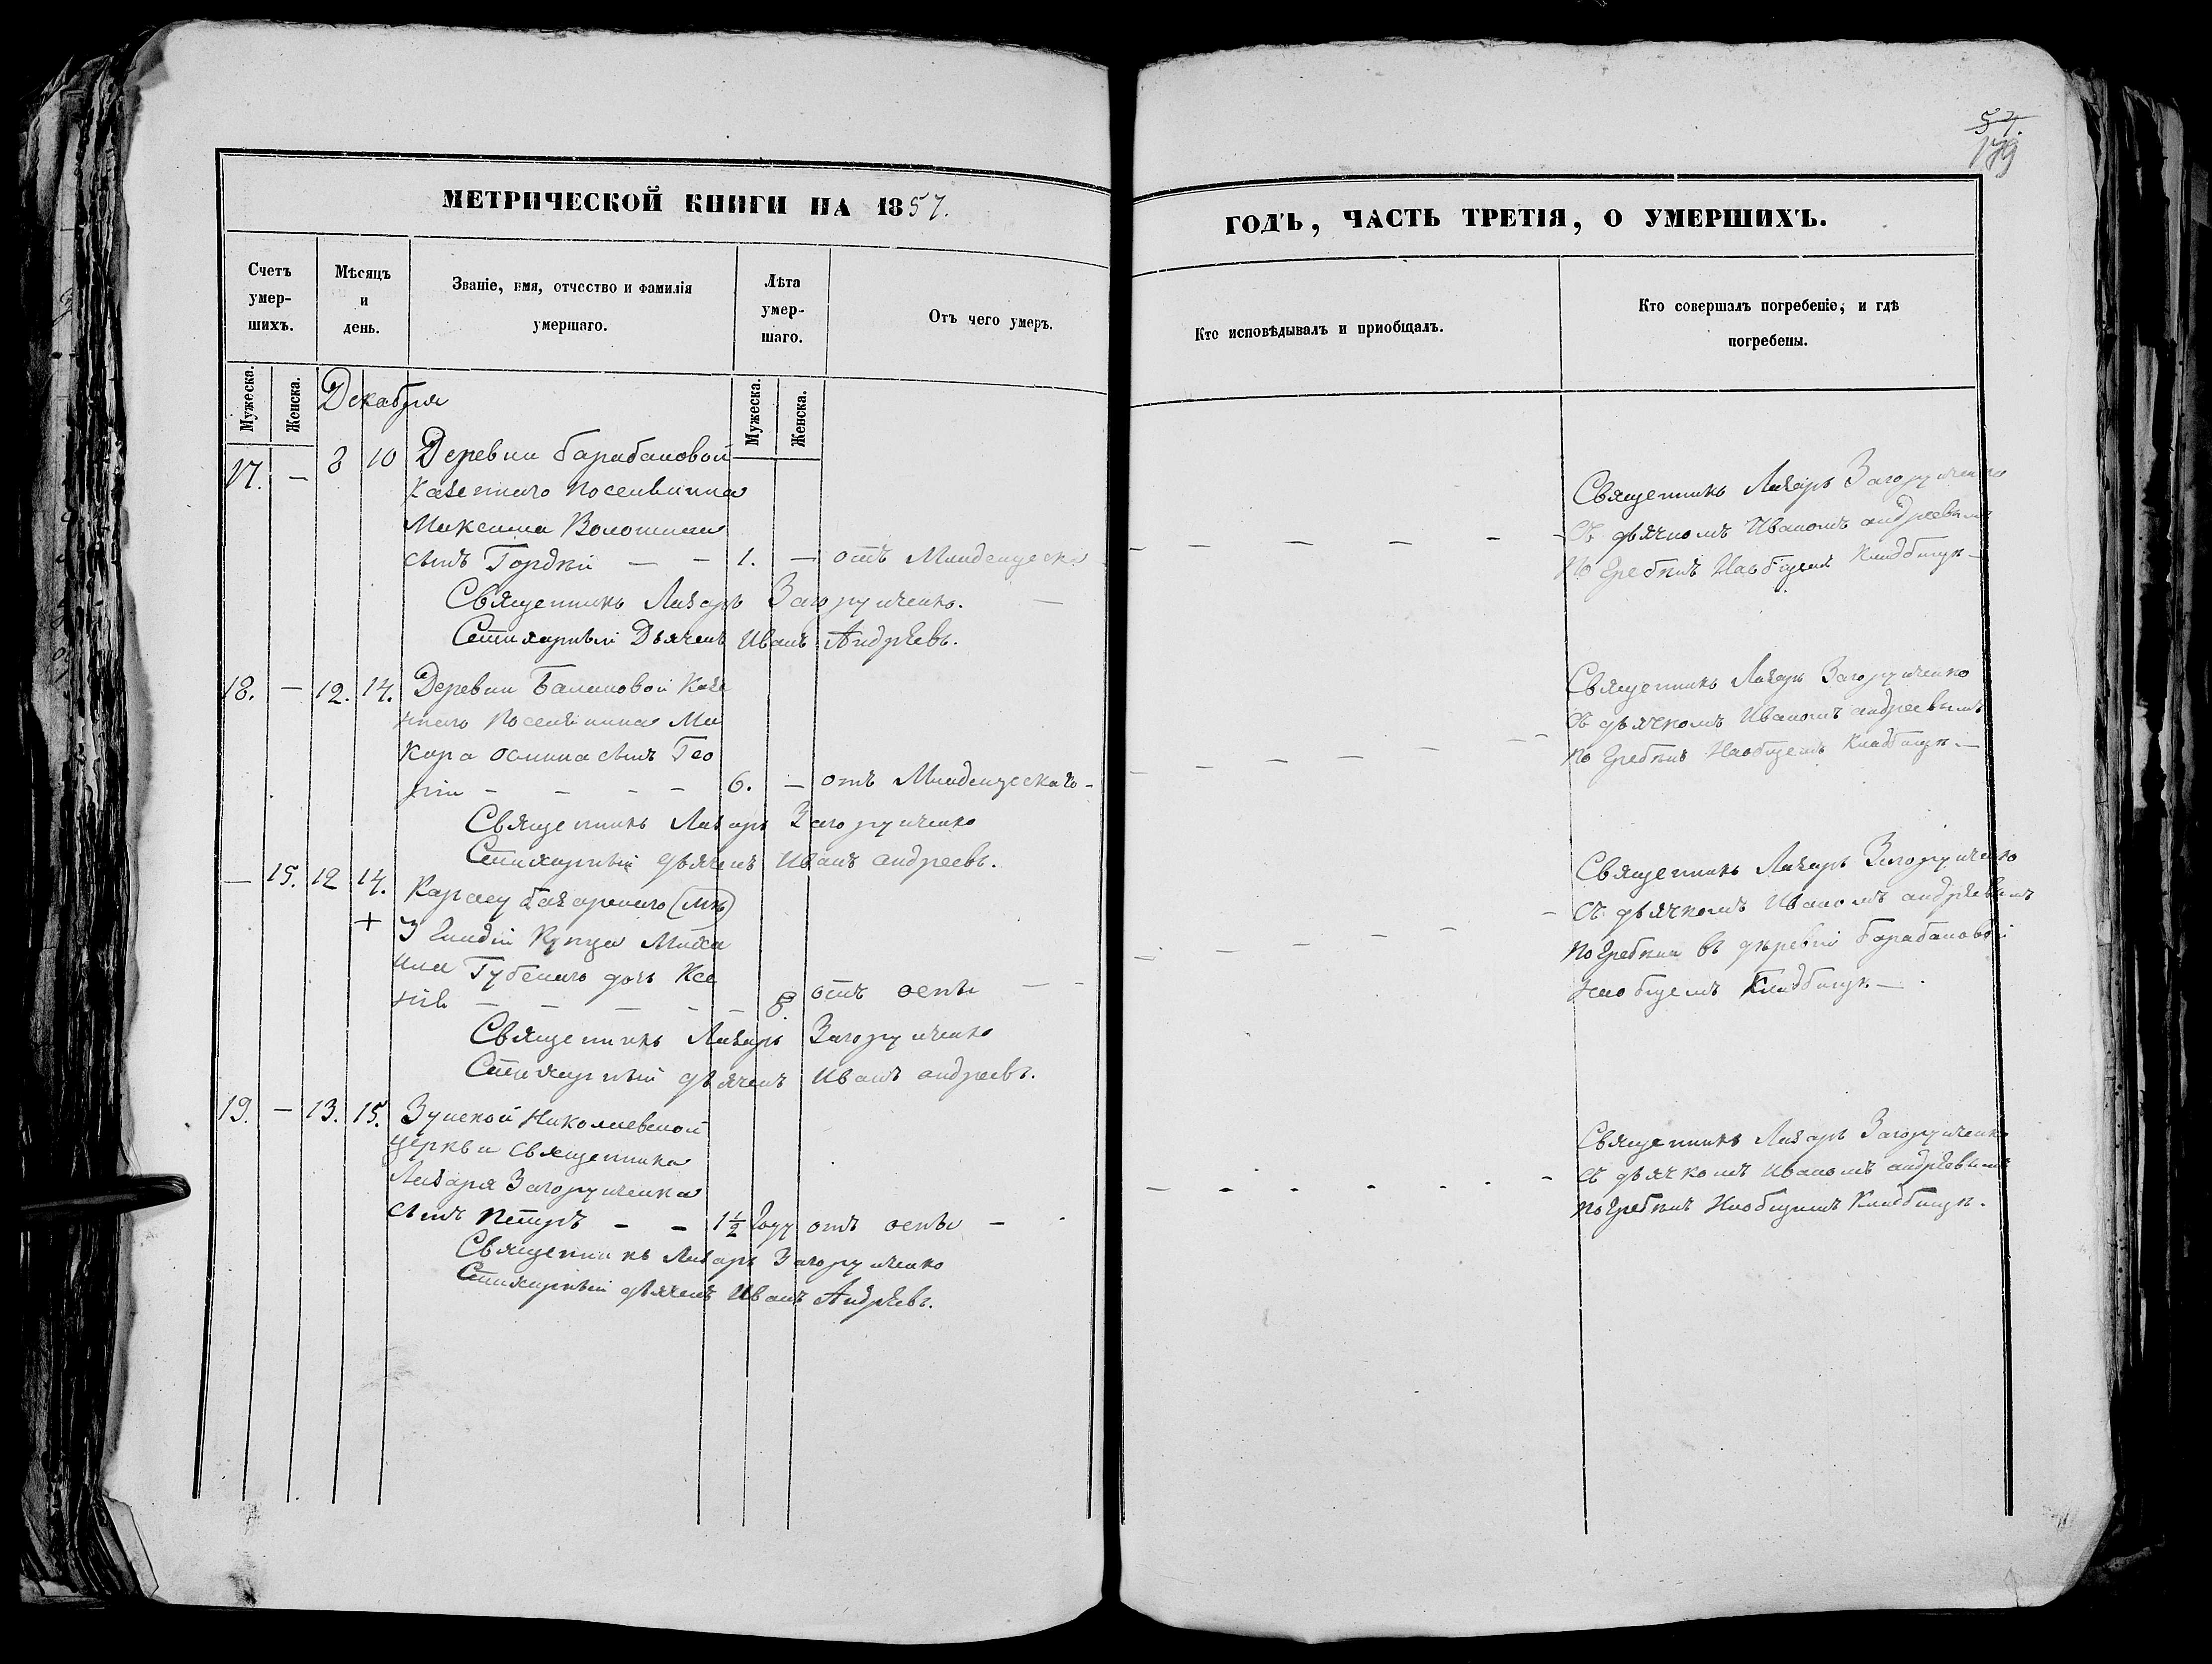 57.
179
МЕТРИЧЕСКОЙ КНИГИ НА 1857.
ГОДЪ, ЧАСТЬ ТРЕТІЯ, О УМЕРШИХЪ.
Счетъ умер-шихъ.
Мѣсяцъ и день.
Званіе, имя, отчество и фамилія умершаго.
Лѣта умер-шаго.
Отъ чего умеръ.
Кто исповѣдывалъ и приобщалъ.
Кто совершалъ погребеніе, и гдѣ погребены.
Мужеска. Женска.
Мужеска. Женска.
Декабря
17. — 8 10 Деревни Барабановой
казеннаго поселянина
Максима Волошина
сынъ Гордѣй — — 1. — отъ Младенческа
Священникъ Лазарь Загорученко. —
Стихарный Дьячекъ Иванъ Андрѣевъ.
Священникъ Лазарь Загорученко
Съ дьячкомъ Иваномъ андреевымъ
Погребенъ Наобщемъ Кладбищѣ —
18. — 12. 14. Деревни Балановой Казе
ннаго поселянина Ма
кара Осипа сынъ Гео
ргій — — — — 6. — отъ Младенческаго -
Священникъ Лазарь Загорученко
Стихарный дьячекъ Иванъ андреевъ.
Священникъ Лазарь Загорученко
Съ дьячкомъ Иваномъ андреевымъ
погребенъ Наобщемъ Кладбищѣ. —
— 15. 12 14. Карасу базарскаго
+ 3 Гилдіи Купца Миха
ила Губскаго дочь Ксе
нія — — — — — 8. отъ оспы — —
Священникъ Лазарь Загорученко
Стихарный дьячекъ Иванъ андреевъ.
Священникъ Лазарь Загорученко
Съ дьячкомъ Иваномъ андрѣевымъ
погребена въ деревнѣ Барабановой
Наобщемъ Кладбищѣ —
19. — 13. 15. Зуйской Николаевской
церкви Священника
Лазаря Загорученка
сынъ Петръ — — 1½ году отъ оспы —
Священникъ Лазарь Загорученко
Стихарный дьячекъ Иванъ Андрѣевъ.
Священникъ Лазарь Загорученко
Съ дьячкомъ Иваномъ андрѣевымъ
погребенъ Наобщемъ Кладбищѣ.